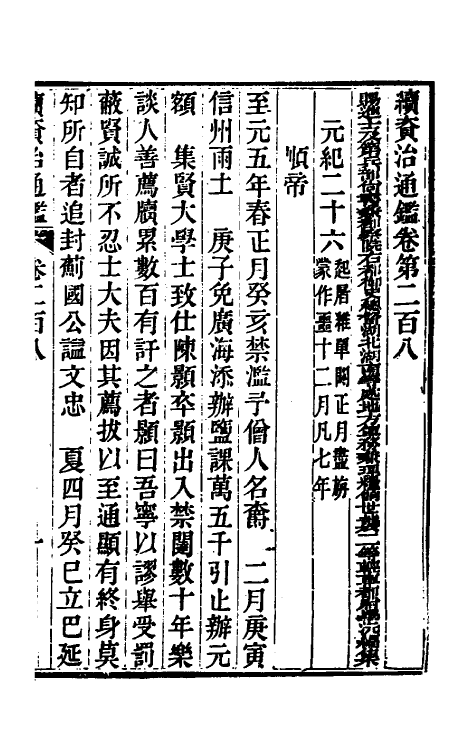 續資治通鑑卷第二百八
元紀二十六起屠維單閼正月盡旃蒙作噩十二月凡七年
順帝
至元五年春正月癸亥禁濫予僧人名爵 二月庚寅
信州雨土 庚子免廣海添辦鹽課萬五千引止辦元
額 集賢大學士致仕陳顥卒顥出入禁闥數十年樂
談人善薦牘累數百有訐之者顥曰吾寧以謬舉受罰
蔽賢誠所不忍士大夫因其薦拔以至通顯有終身莫
知所自者追封薊國公諡文忠 夏四月癸巳立巴延
續資治通鑑 卷二百八 一